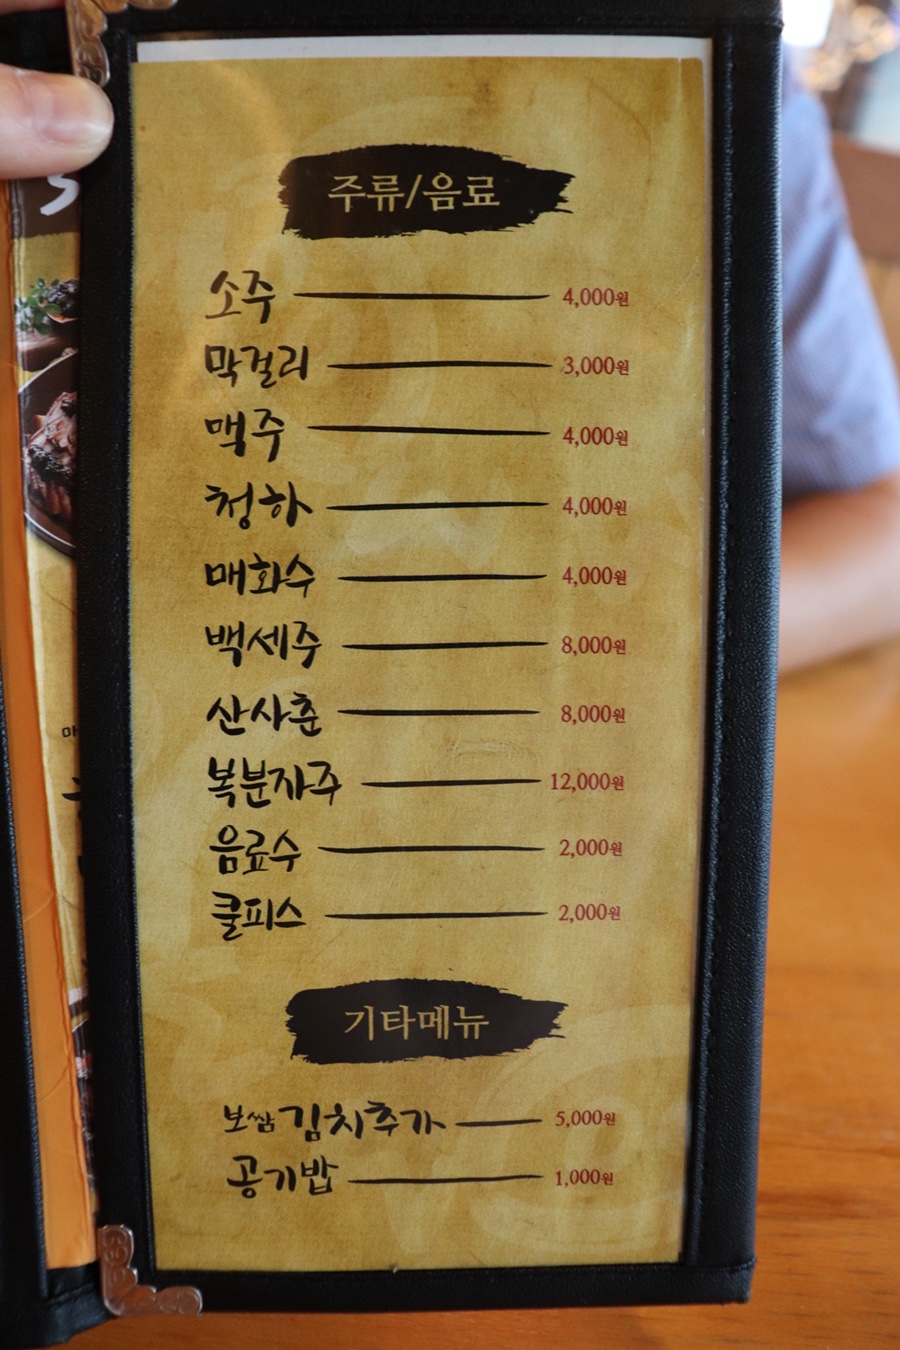 주류/음료
소주 4,000원
막걸리 3,000원
맥주 4,000원
청하 4,000원
매화수 4,000원
백세주 8,000원
산사춘 8,000원
복분자주 12,000원
음료수 2,000원
쿨피스 2,000원
기타메뉴
보쌈김치추가 5,000원
공기밥 1,000원